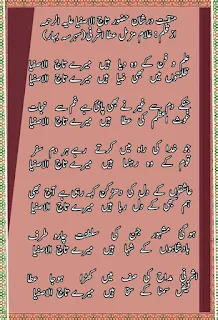 منقبت در شان حضور تاج الاصفیا علیہ الرحمہ
از قلم : غلام مزمل عطا اشرفی (سہرسہ بہار)
علم و فن کے وہ دیا ہیں میرے تاج الاصفیا
ظلمتوں میں بھی ضیا ہیں میرے تاج الاصفیا
جنکے دم سے غیر نے بھی پائی ہے غم سے نجات
غوث الاعظم کی عطا ہیں میرے تاج الاصفیا
جو خدا کی راہ میں کرتے رہے ہر دم سفر
قوم کے وہ رہنما ہیں میرے تاج الاصفیا
عاشقان کے دل کی دھڑکن کہہ رہی ہے آج بھی
ہم سبھی کے دل ربا ہیں میرے تاج الاصفیا
ہو گئی مشہور جن کی سلطنت چاروں طرف
بادشاہوں کے شہا ہیں میرے تاج الاصفیا
اشرفی مداح کی صف میں کھڑا ہوجا عطا
فیض سونا کے سنا ہیں میرے تاج الاصفیا